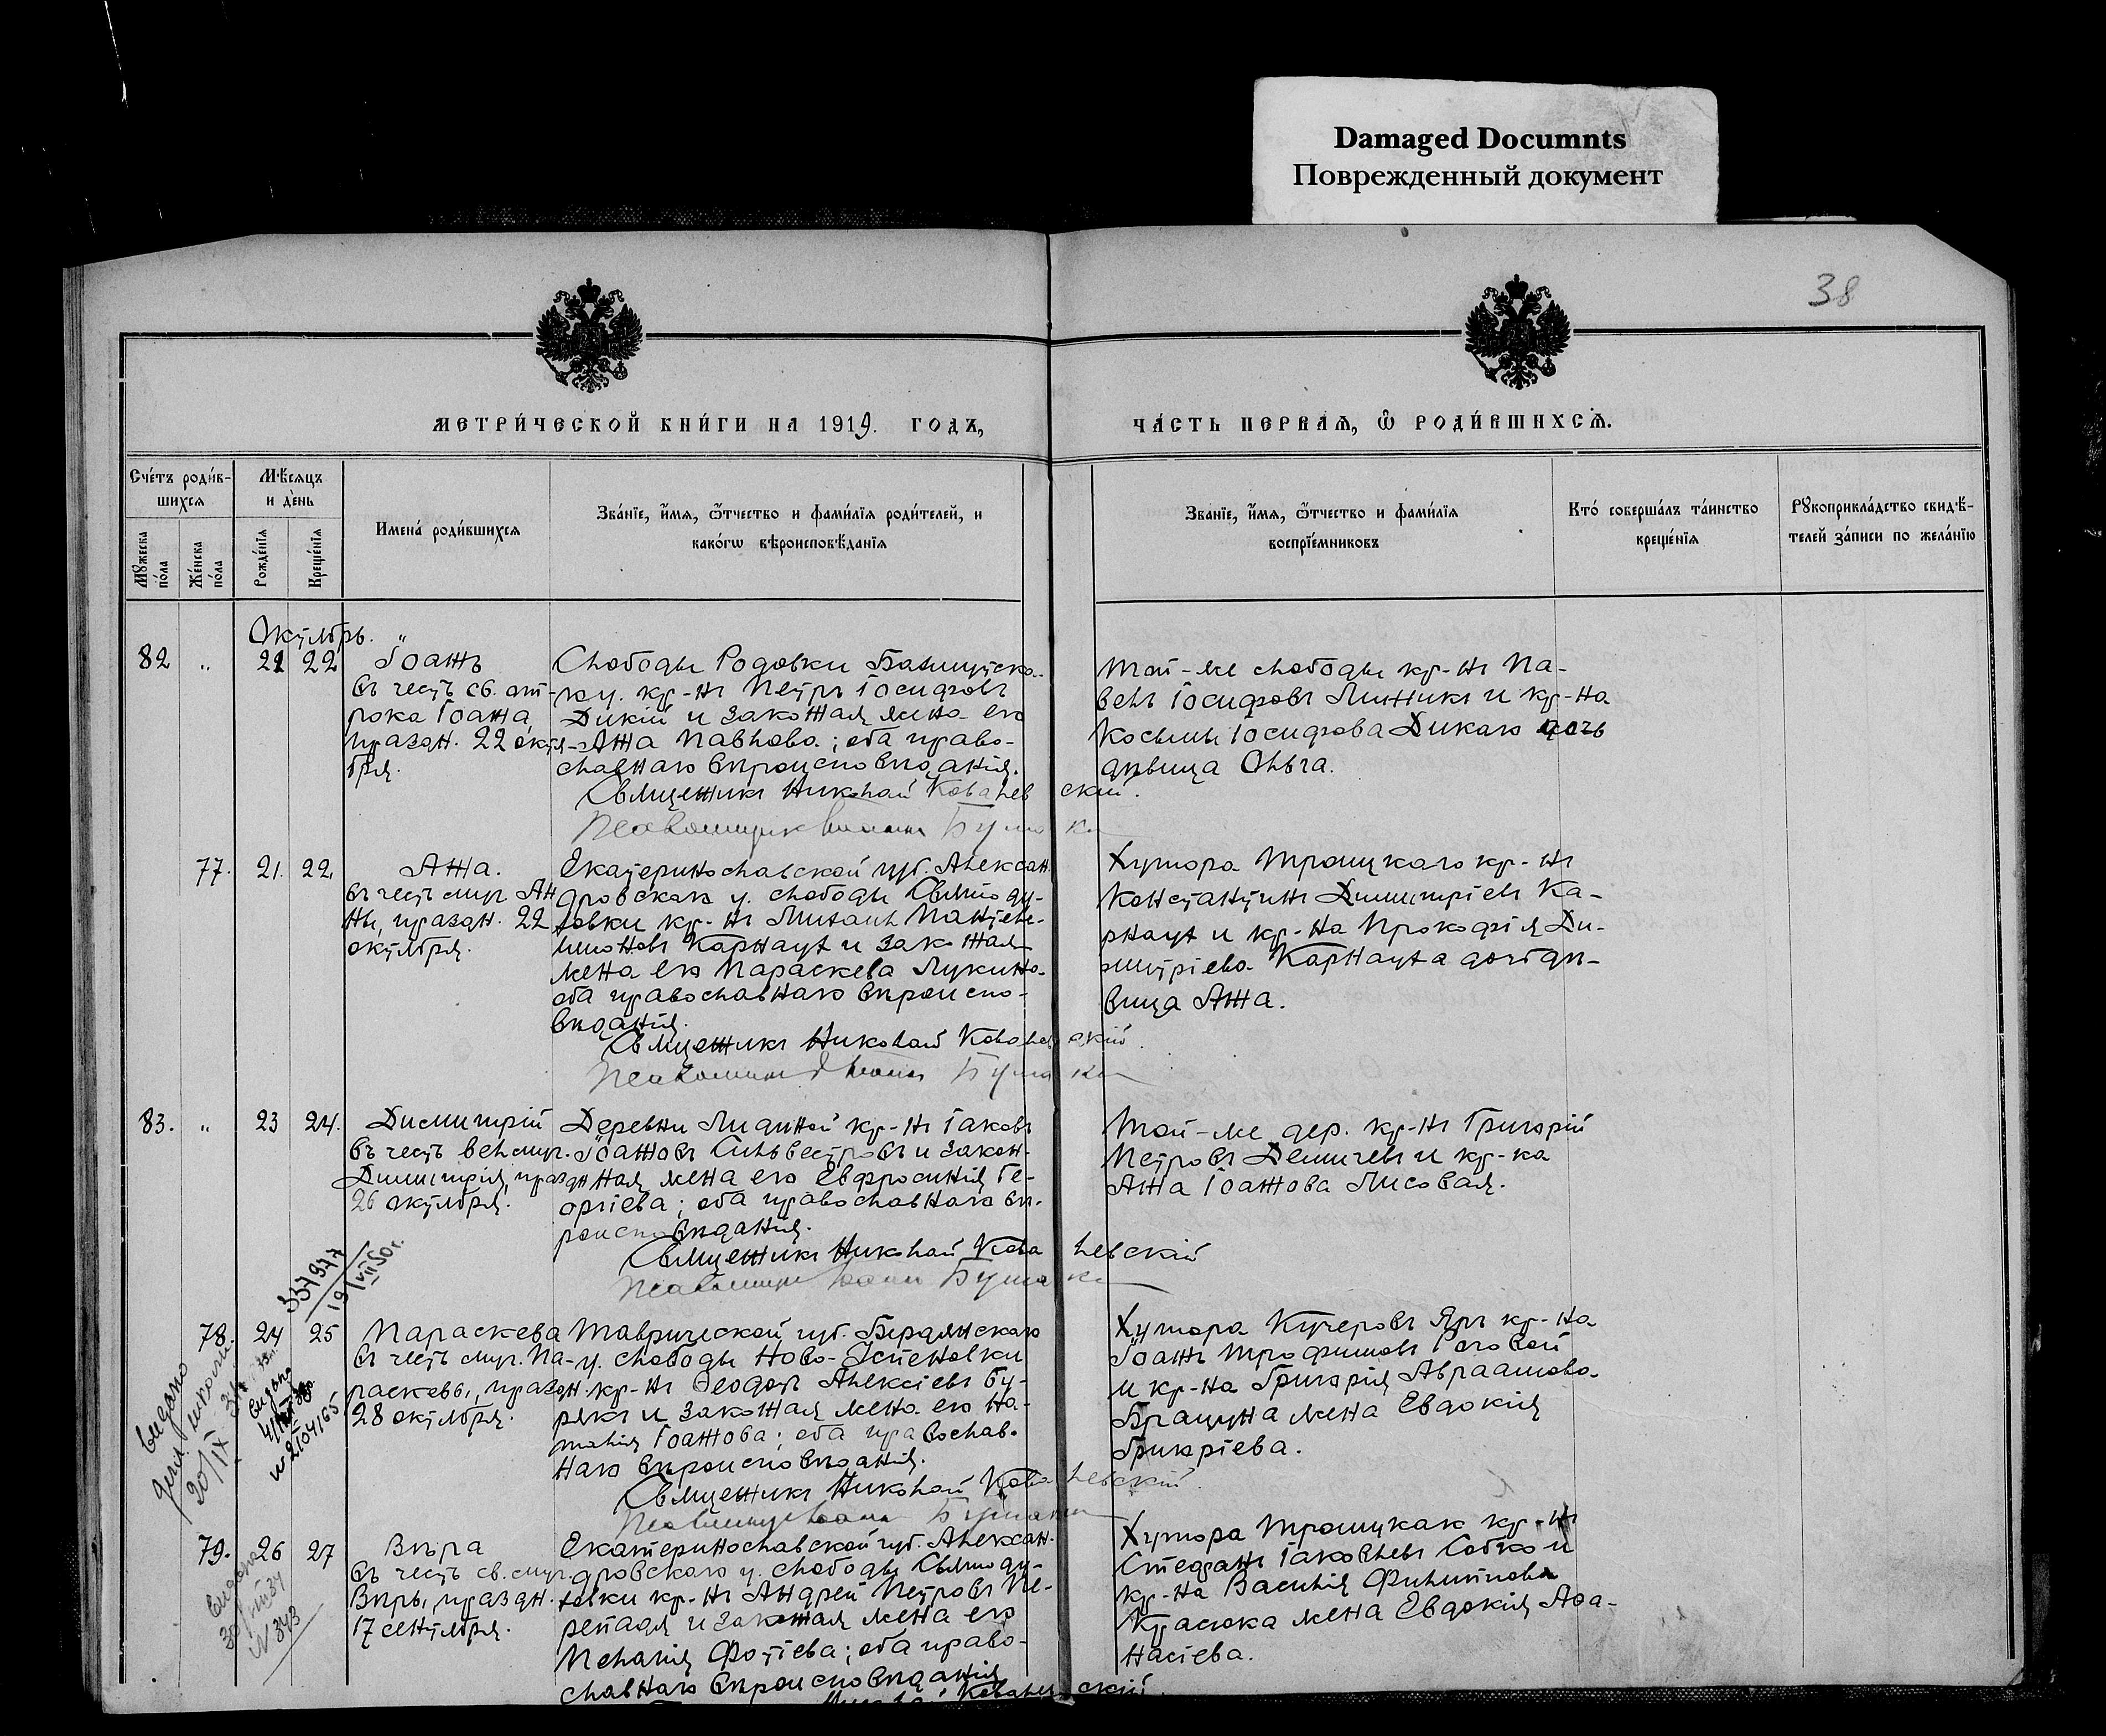 Damaged Documnts
Поврежденный документ
38
МЕТРИ́ЧЕСКОЙ КНИ́ГИ НА 1919. ГОДЪ,
ЧА́СТЬ ПЕРВАѦ, Ѽ РОДИ́ВШИХСѦ.
Сче́тъ роди́в-
шихсѧ
Мꙋжеска по́ла
Же́нска по́ла
Мѣ́сѧцъ
и де́нь
Рожде́нїѧ
Креще́нїѧ
Имена̀ роди́вшихсѧ
Зва́нїе, и҆́мѧ, ѻ҆́тчество и фами́лїѧ роди́телей, и
како́гѡ вѣроисповѣ́данїѧ
Зва́нїе, и҆́мѧ, ѻ҆́тчество и фами́лїѧ
воспрїе́мниковъ
Кто́ соверша́лъ та́инство
креще́нїѧ
Рꙋкоприкла́дство свидѣ́-
телей за́писи по жела́нїю
Октябрь.
82 " 21 22
Іоаннъ
въ честь св. от-
рока Іоанна,
праздн. 22 октя-
бря.
Слободы Родовки Бахмутска-
го у. кр-нъ Петръ Іосифовъ
Дикій и законная жена его
Анна Павлова; оба право-
славнаго вѣроисповѣданія.
Священникъ Николай Ковалевскій.
Псаломщикъ
Той-же слободы кр-нъ Па-
велъ Іосифовъ Линникъ и кр-на
Косьмы Іосифова Дикаго дочь
дѣвица Ольга.
77. 21. 22.
Анна.
въ честь муч. Ан
ны, праздн. 22
октября.
Екатеринославской губ. Алексан
дровскаго у. слободы Святоду-
ховки кр-нъ Михаилъ Пантеле-
имоновъ Карнаух и законная
жена его Параскева Лукина.
оба православнаго вѣроиспо-
вѣданія.
Священникъ Николай Ковалевскій.
Псаломщикъ
Хутора Троицкаго кр-нъ
Константинъ Димитріевъ Ка-
рнаух и кр-на Прокофія Ди-
митріева Карнауха дочь дѣ-
вица Анна.
83. " 23 24.
Димитрій
въ честь велмуч.
Димитрія, празд
26 октября.
Деревни Лидиной кр-нъ Іаковъ
Іоанновъ Сильвестровъ и закон-
ная жена его Евфросинія Ге-
оргіева; оба православнаго вѣ-
роисповѣданія.
Священникъ Николай Ковалевскій
Псаломщикъ
Той-же дер. кр-нъ Григорій
Петровъ Демичевъ и кр-ка
Анна Іоаннова Лисовая.
78. 24 25
Параскева
въ честь муч. Па-
раскевы, праздн.
28 октября.
Таврической губ. Бердянскаго
у. слободы Ново-Успеновки
кр-нъ Ѳеодоръ Алексіевъ Бу-
рякъ и законная жена его На-
талія Іоаннова; оба православ-
наго вѣроисповѣданія.
Священникъ Николай Ковалевскій.
Псаломщикъ
Хутора Кучеровъ Яръ кр-нъ
Іоаннъ Трофимовъ Роговой
и кр-на Григорія Авраамова
Брацуна жена Евдокія
Григоріева.
79. 26 27
Вѣра
въ честь св. муч.
Вѣры, праздн.
17 сентября.
Екатеринославской губ. Алексан-
дровскаго у. слободы Святоду-
ховки кр-нъ Андрей Петровъ Пе-
репадя и законная жена его
Пелагія Фотіева; оба право-
славнаго вѣроисповѣданія
Хутора Троицкаго кр-нъ
Стефанъ Іаковлевъ Собко и
кр-на Василія Филиппова
Красюка жена Евдокія Аѳа-
насіева.